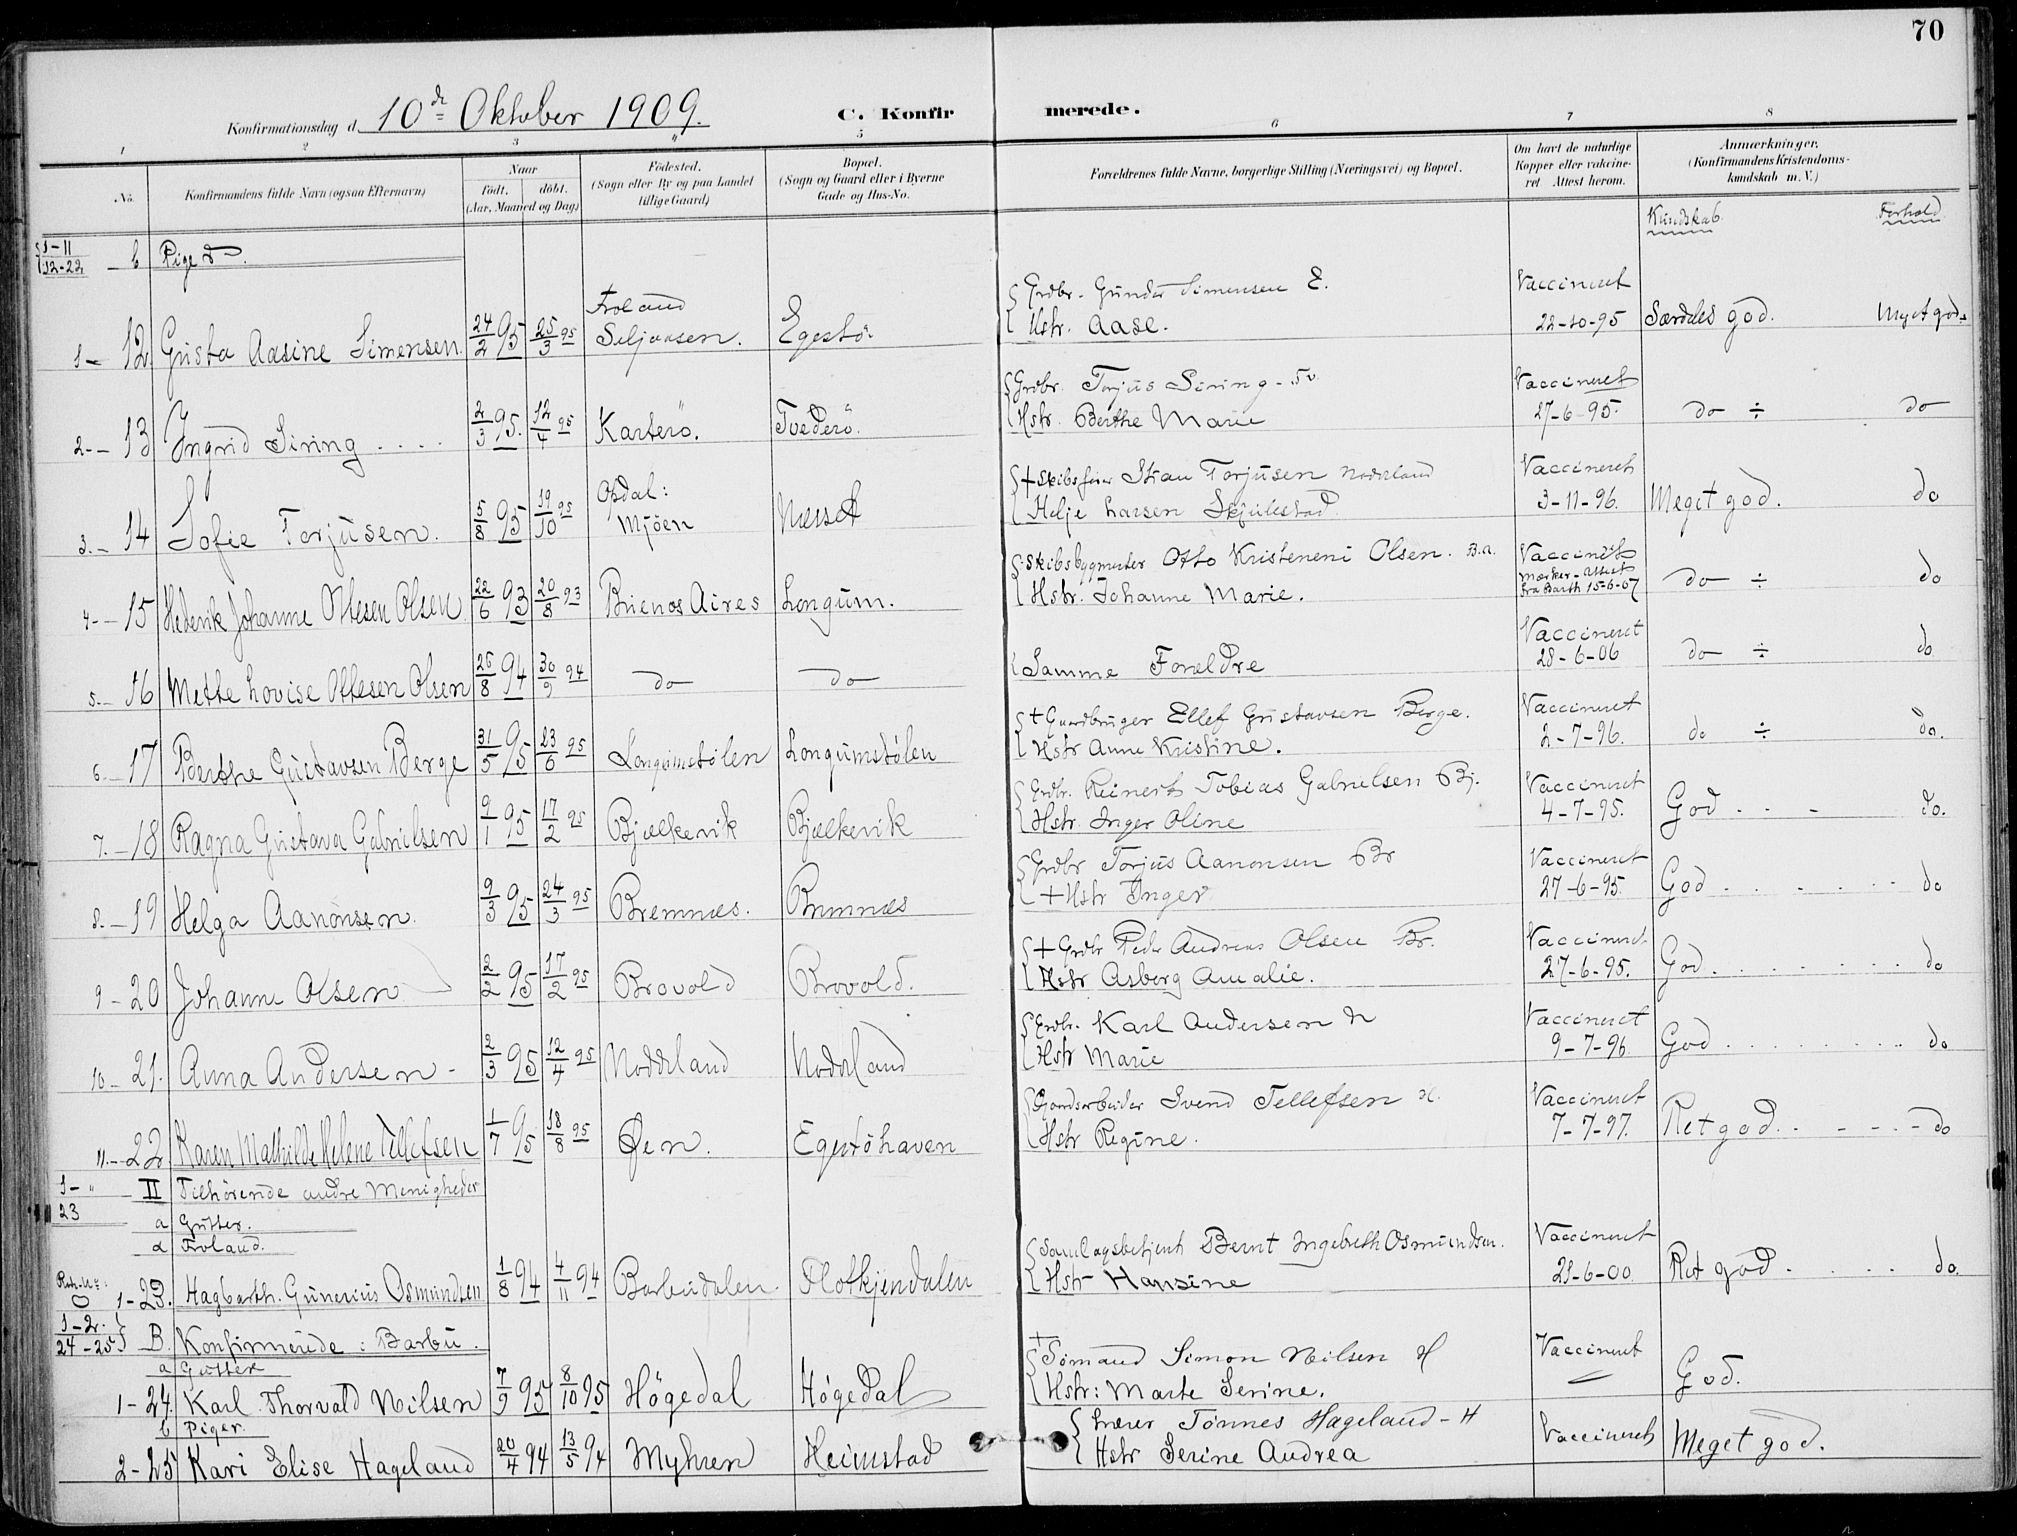 70
Konfirmationsdag d. 10de Oktober 1909.
C. Konfirmerede.
1 2 3 4 5 6 7 8
No. Konfirmandens fulde Navn (ogsaa Efternavn)
Naar født, døbt. (Aar, Maaned og Dag)
Fødested. (Sogn eller By og paa Landet tillige Gaard)
Bopæl. (Sogn og Gaard eller i Byerne Gade og Hus-No.
Forældrenes fulde Navne, borgerlige Stilling (Næringsvei) og Bopæl.
Om havt de naturlige Kopper eller vakcineret Attest herom.
Anmærkninger. (Konfirmandens Kristendomskundskab m. V.)
Kundskab. Forhold
1-11
12-22 b Piger.
1- 12 Gusta Aasine Simensen 24/2 95 25/3 95 Froland Seljaasen. Egestø
Grdbr. Gunder Simensen E.
Hstr. Aase.
Vaccineret 22-10-95 Særdeles god. Meget god.
2- 13 Ingrid Siring .... 2/3 95. 12/4 95 Karterö. Tvederö.
Grdbr. Torjus Siring - Tv.
Hstr. Berthe Marie
Vaccineret 27-6-95. do ÷ do
3.- 14 Sofie Torjusen. 5/8 95 19/10 95 Opdal: Mjöen Næsset
+ Skibsfører Stian Torjusen Nodeland
Helje Larsen Skjulestad
Vaccineret 3-11-96. Meget god. do
4- 15 Hedevik Johanne Ottesen Olsen 22/6 93 20/8 93 Buenos Aires Longum.
Skibsbygmester Otto Kristeneni Olsen. B.A.
Hstr. Johanne Marie.
Vaccineret Mærker - Attest fra Barth 15-6-07 do ÷ do
5.- 16 Mette Lovise Ottesen Olsen 25/8 94 30/9 94 do do
Samme Foreldre
Vaccineret 28-6-06 do ÷ do
6.- 17 Berthe Gustavsen Berge 31/5 95 23/6 95 Longumstølen Longumstølen
+ Gaardbruger Ellef Gustavsen Berge.
Hstr Anne Kristine.
Vaccineret 2-7-96. do ÷ do.
7.- 18 Ragna Gustava Gabrielsen 9/1 95 17/2 95 Bjælkevik Bjælkevik
Grdbr. Reinert Tobias Gabrielsen Bj.
Hstr. Inger Oline
Vaccineret 4-7-95. God . . - do.
8.- 19 Helga Aanonsen. 9/3 95 24/3 95 Bremnæs. Bremnæs
Grdbr Torjus Aanonsen Br
+ Hstr Inger
Vaccineret 27-6-95. God . . . . . . do
9- 20 Johanne Olsen 2/2 95 17/2 95 Brovold Brovold.
+ Grdbr Peder Andreas Olsen Br.
Hstr Asborg Amalie.
Vaccineret 27-6-95. God . . . . . . . do
10- 21. Anna Andersen - 2/3 95 12/4 95 Noddeland Nodeland
Grdbr. Karl Andersen N
Hstr Marie
Vaccineret 9-7-96 God . . . . . . . . do
11.- 22 Karen Mathilde Helene Tellefsen 1/7 95 18/8 95 Øen. Egestöhaven
Gaardsarbeider Svend Tellefsen H.
Hstr Regine.
Vaccineret 7-7-97. Ret god . . - - . - do
1- " - II Tilhörende andre Menigheder
23 a Gutter.
α Froland.
1-23. Hagbarth Gunerius Osmundsen 1/8 94 4/11 94 Barbudalen Flotkjendalen
Samlagsbetjent Bernt Ingebreth Osmundsen.
Hstr Hansine
Vaccineret 21-6-00 Ret god . . . . do.
1-2.
24-25 B. Konfirmerede: Barbu.
a Gutter
1-24. Karl Thorvald Nilsen 7/9 95 8/10 95 Högedal Högedal
+ Sömand Simon Nilsen H
Hstr: Marte Serine.
Vaccineret God.
b Piger.
2-25 Kari Elise Hageland 20/4 94 13/5 94 Myhren Heimstad
Lærer Tönnes Hageland - H
Hstr Serine Andrea
Vaccineret Meget god.